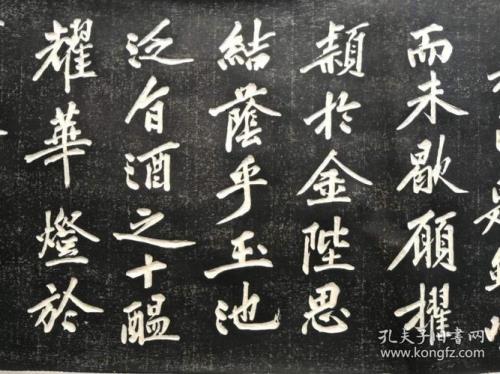 而未歇顧擢
穎於金陛思
結蔭乎玉池
泛旨酒之十醖
耀華燈於
孔夫子旧书网
www.kongfz.com